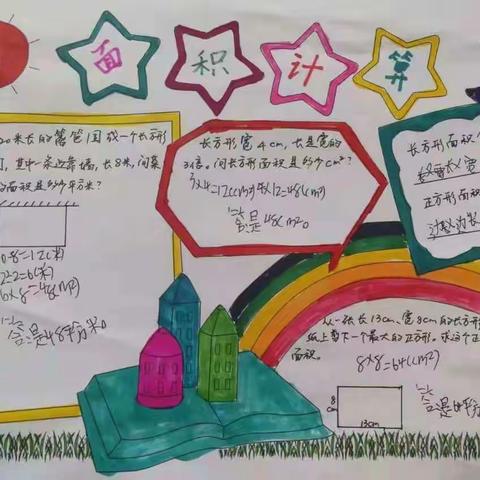 面积计算
20米长的篱笆围成一个长形
其中一条边靠墙,长8米,问菜
的面积是多少平方米?
20-8=12(米)
12÷2=6(米)
6×8=48(m²)
答:是48平方米。
长方形宽4cm,长是宽的
3倍。问长方形面积是多少cm²?
3×4=12(cm) 4×12=48(cm²)
答:是48cm²。
长方形面积
长×宽
正方形面积
边长×边长
从一张长13cm、宽8cm的长方形
纸上剪下一个最大的正方形。求这个正
面积。
8×8=64(cm²)
8
cm
13cm
答:是